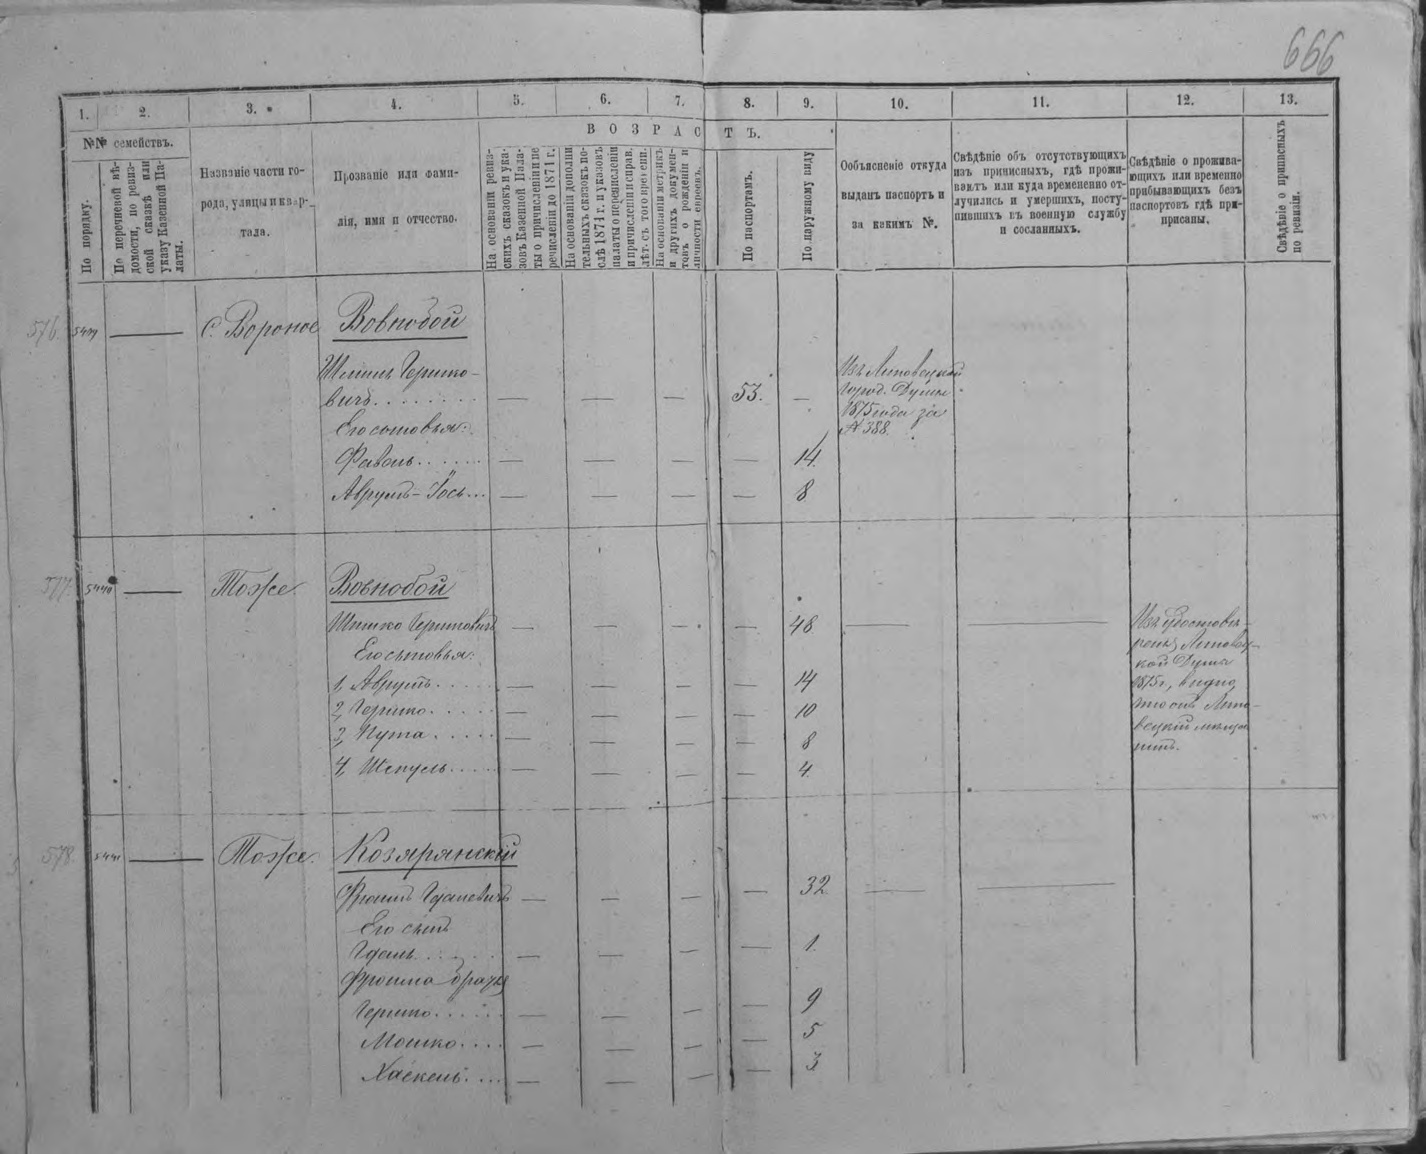 666
1. 2. 3. 4. 5. 6. 7. 8. 9. 10. 11. 12. 13.
№№ семействъ.
В О З Р А С Т Ъ.
По порядку.
По перечневой вѣ-
домости, по ревиз-
ской сказкѣ или
указу Казенной Па-
латы.
Названіе части го-
рода, улицы и квар-
тала.
Прозваніе или фами-
лія, имя и отчество.
На основаніи ревиз-
скихъ сказокъ и ука-
зовъ Казенной Пала-
ты о причисленіи и пе
речисленіи до 1871 г.
На основаніи дополни
тельныхъ сказокъ по-
слѣ 1871 г. и указовъ
палаты о перечисленіи
и причисленіи и справ.
лѣт. съ того времени.
На основаніи метрикъ
и другихъ докумен-
товъ о рожденіи и
личности евреевъ.
По паспортамъ.
По наружному виду
Ообъясненіе откуда
выданъ паспортъ и
за какимъ №.
Свѣдѣніе объ отсутствующихъ
изъ приписныхъ, гдѣ прожи-
ваютъ или куда временно от-
лучились и умершихъ, посту-
пившихъ въ военную службу
и сосланныхъ.
Свѣдѣніе о прожива-
ющихъ или временно
прибывающихъ безъ
паспортовъ гдѣ при-
писаны.
Свѣдѣніе о приписныхъ
по ревизіи.
576. 5439 — с. Вороное Вовнобой
Шлиомъ Гершко-
вичъ — — — 53. —
Изъ Липовецкой
город. Думы
1875 года за
№ 388.
Его сыновья:
Фавель — — — — 14.
Аврумъ-Іось — — — — 8
577. 5440 — Тоже Вовнобой
Шишко Гершковичъ — — — — 48 — —
Его сыновья:
1, Аврумъ — — — — 14
2, Гершко — — — — 10
3, Нута — — — — 8
4, Шепсель — — — — 4
Изъ удостовѣ-
рені Липовец-
кой Думы
1875 г., видно,
что онъ Липо-
вецкій мѣща-
нинъ.
578. 5441 — Тоже Козярянскій
Фроимъ Гдалевичъ — — — — 32 — —
Его сынъ
Гдаль — — — — 1.
Фроима братья
Гершко — — — — 9
Мошко — — — — 5
Хаскель — — — — 3